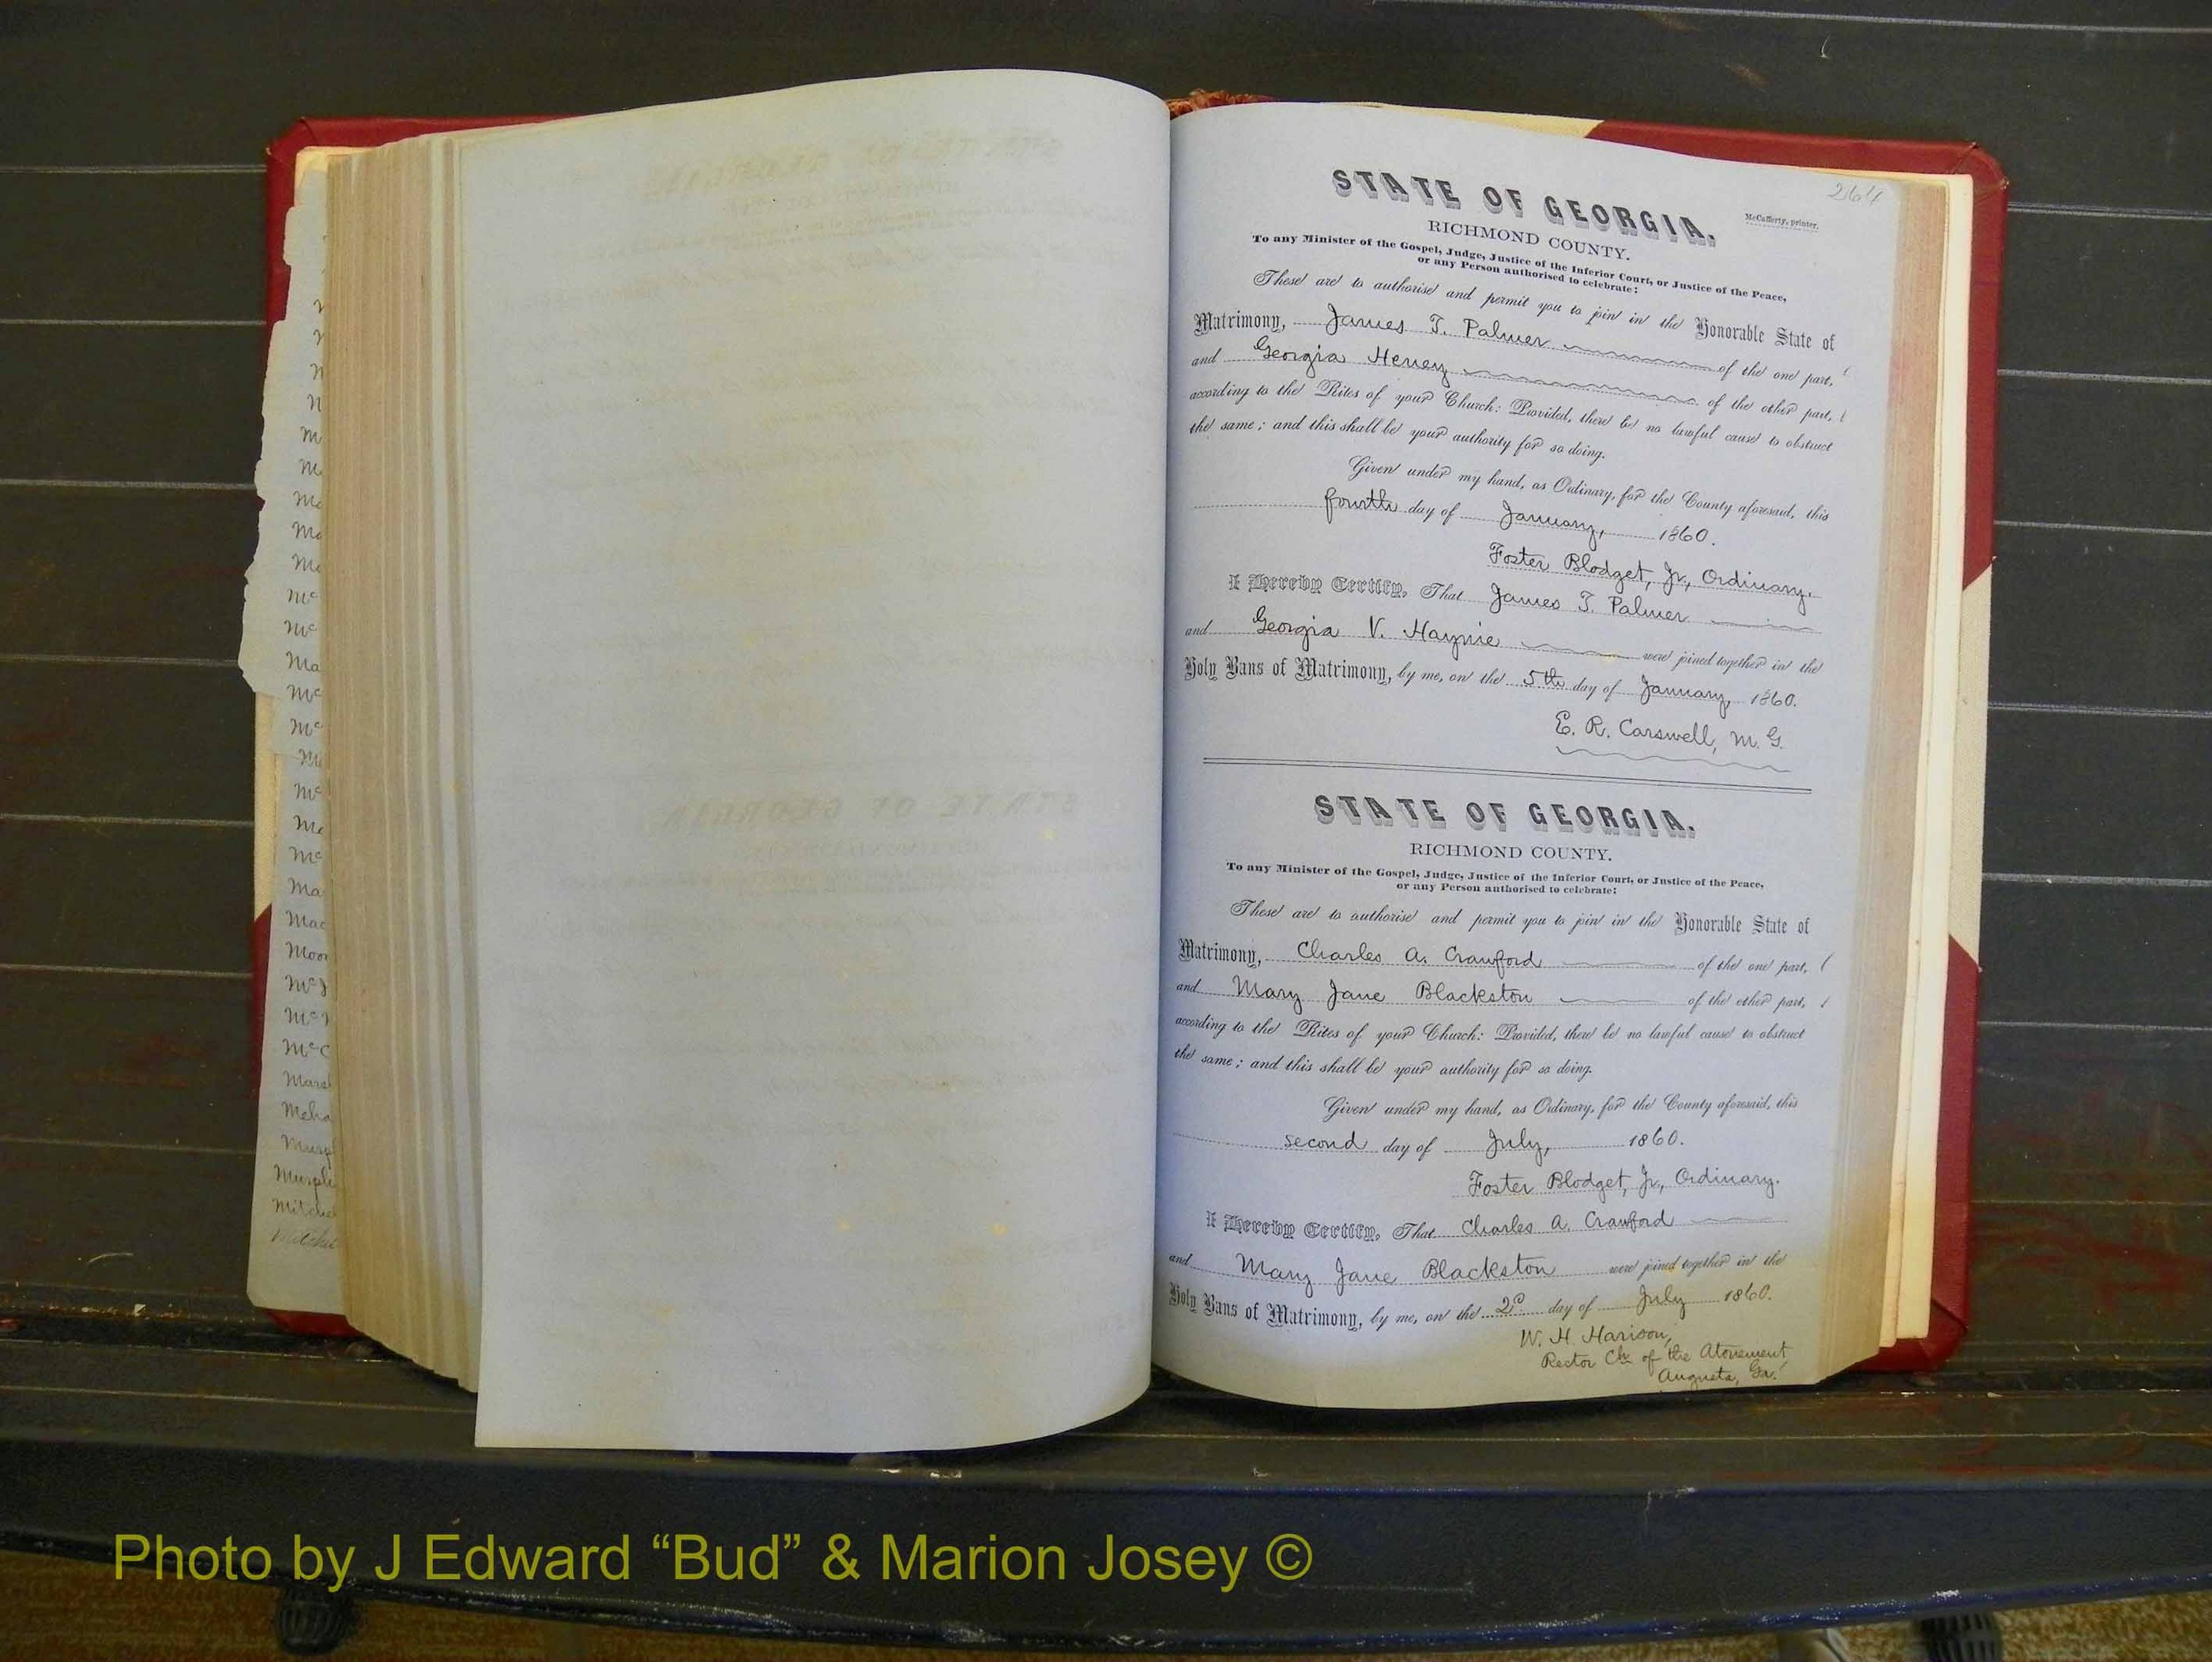 264
STATE OF GEORGIA.
McCafferty, printer.
RICHMOND COUNTY.
To any Minister of the Gospel, Judge, Justice of the Inferior Court, or Justice of the Peace,
or any Person authorised to celebrate:
These are to authorise and permit you to join in the Honorable State of
Matrimony, James T. Palmer of the one part,
and Georgia Heney of the other part,
according to the Rites of your Church: Provided, there be no lawful cause to obstruct
the same; and this shall be your authority for so doing.
Given under my hand, as Ordinary, for the County aforesaid, this
fourth day of January, 1860.
Foster Blodget, Jr., Ordinary.
I Hereby Certify, That James T. Palmer
and Georgia V. Haynie were joined together in the
Holy Bans of Matrimony, by me, on the 5th day of January, 1860.
E. R. Carswell, M. G.
STATE OF GEORGIA.
RICHMOND COUNTY.
To any Minister of the Gospel, Judge, Justice of the Inferior Court, or Justice of the Peace,
or any Person authorised to celebrate:
These are to authorise and permit you to join in the Honorable State of
Matrimony, Charles A. Crawford of the one part,
and Mary Jane Blackston of the other part,
according to the Rites of your Church: Provided, there be no lawful cause to obstruct
the same; and this shall be your authority for so doing.
Given under my hand, as Ordinary, for the County aforesaid, this
second day of July, 1860.
Foster Blodget, Jr., Ordinary.
I Hereby Certify, That Charles A. Crawford
and Mary Jane Blackston were joined together in the
Holy Bans of Matrimony, by me, on the 2d day of July 1860.
W. H. Harison,
Rector Ch. of the Atonement
Augusta, Ga.
Photo by J Edward “Bud” & Marion Josey ©